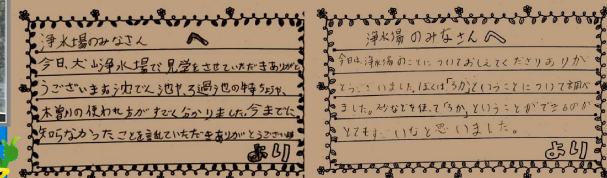 浄水場のみなさん へ
今日、犬山浄水場で見学をさせていただきありがと
うございますおうちでん池や、ろ過う池の特ちょうや、
木曽川の使われ方がすごく分かりました。今までに
知らなかったことを教えていただきありがとうございま
より
浄水場のみなさんへ
今日は、浄水場のことについておしえてくださりありが
とうございました。ぼくは「ろか」ということについて調べ
ました。砂などを使って「ろか」ということができるのが
とてもすごいなと思いました。
より